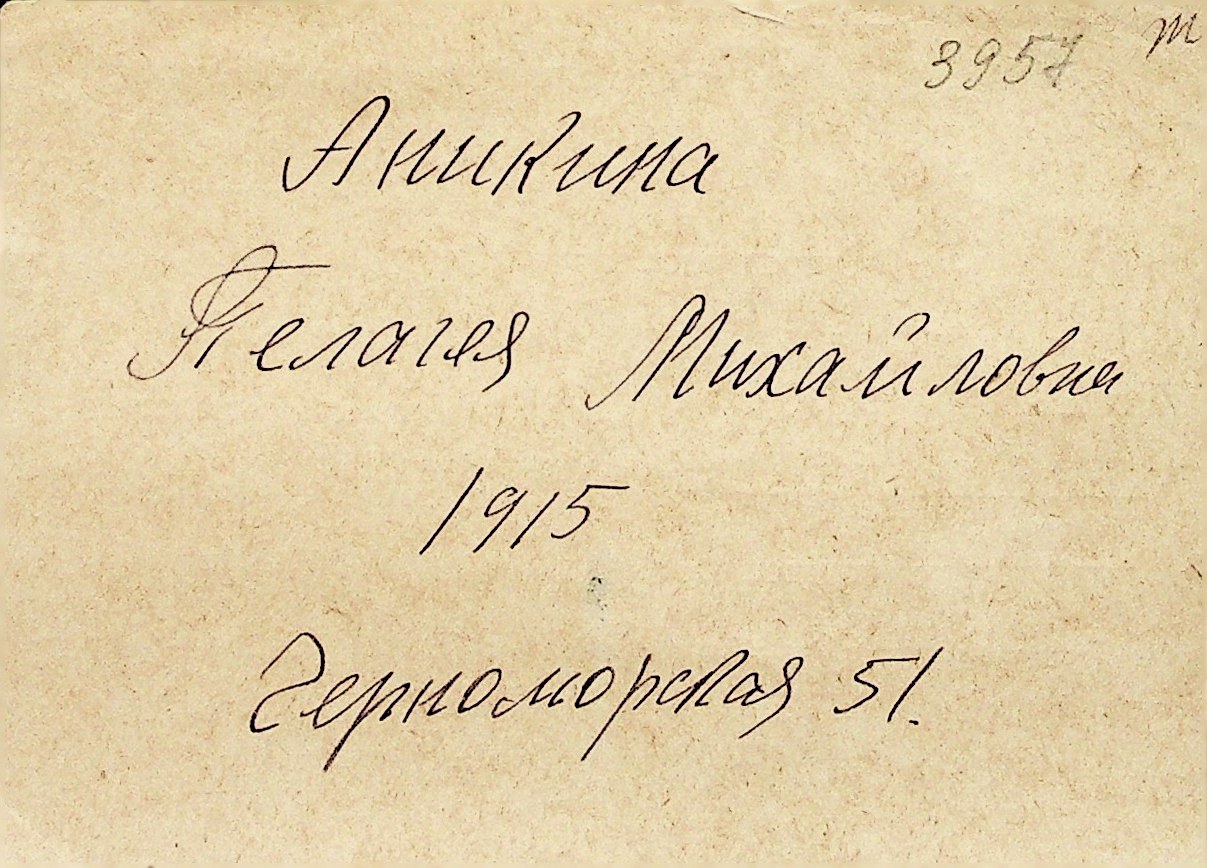 3957 т
Аникина
Пелагея Михайловна
1915
Черноморская 51.